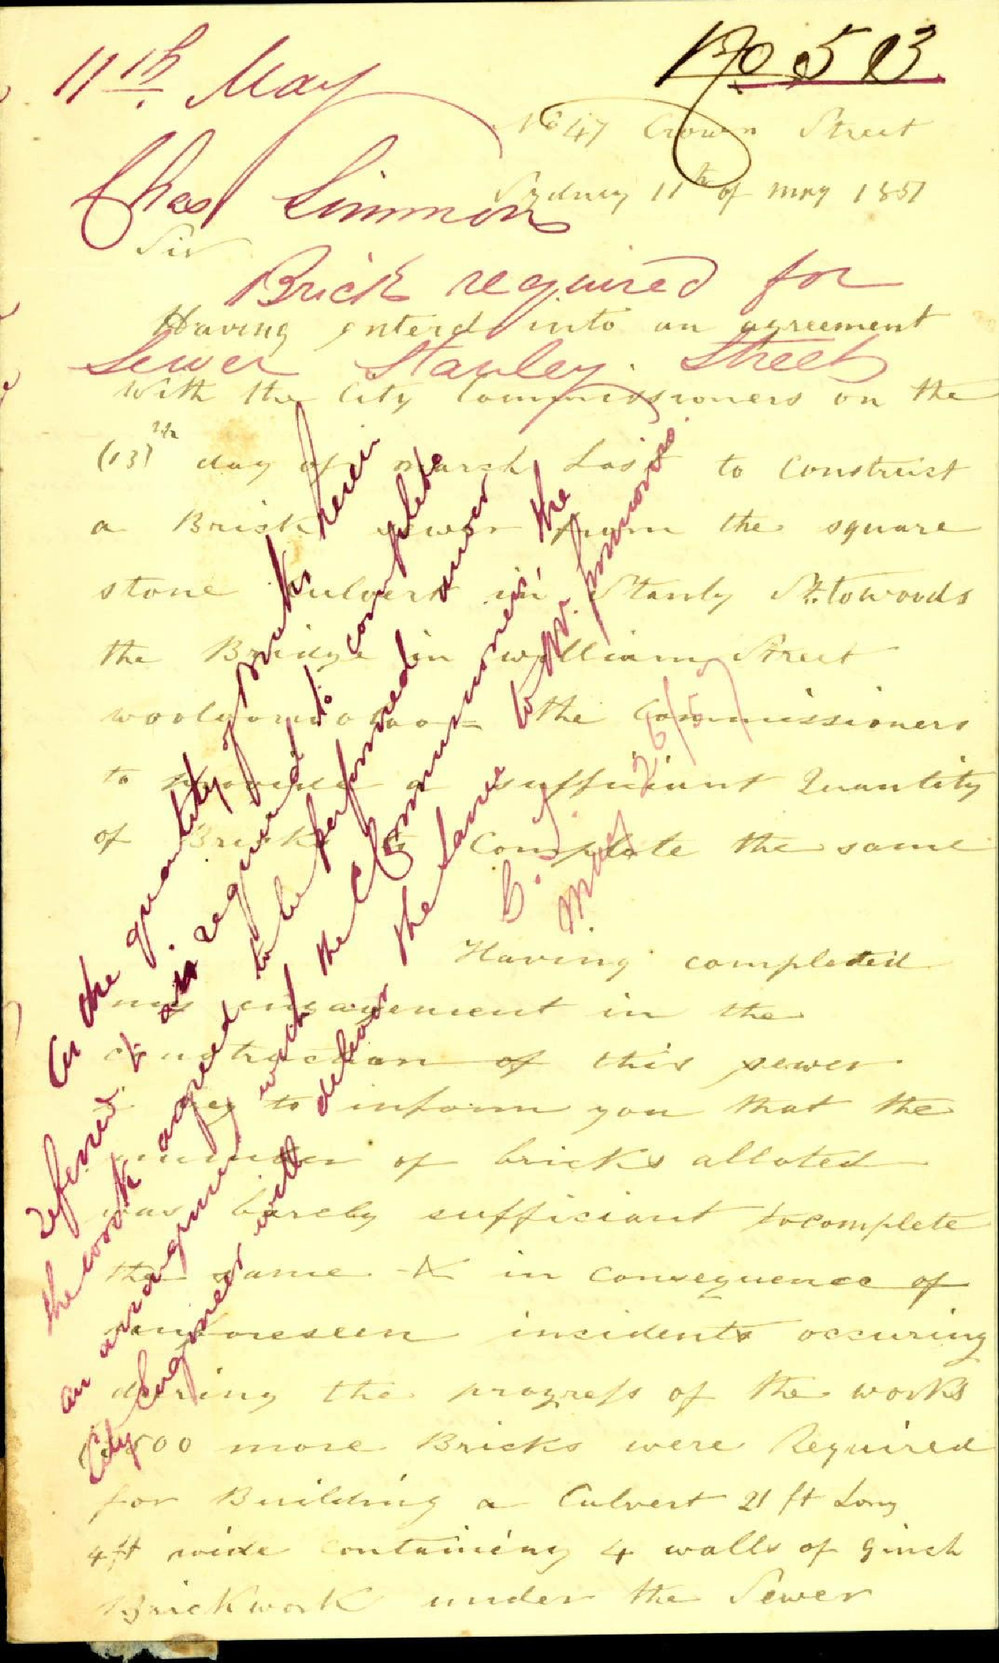 No 513
11th May
Chas Simmons
Brick required for
Sewer Stanley Street
No 47 Crown Street
Sydney 11th of may 1857
Sir
Having enterd into an agreement
With the City Commissioners on the
(13)th day of march Last to Construct
a Brick sewer from the square
stone Culvert in Stanly St. towards
the Bridge in william Street
the Commissioners
to a sufficiant Quantity
of Bricks to Complete the same
Having completed
my engagement in the
construction of this sewer
to inform you that the
number of bricks alloted
was barely sufficiant to complete
the same & in consequence of
unforeseen incidents occuring
during the progress of the works
more Bricks were Required
for Building a Culvert 21 ft Long
4 ft wide Containing 4 walls of 9 inch
Brickwork under the Sewer
As the quantity of bricks herein
referred to is required to complete
the work agreed to be performed under
an arrangemt with the Commissioners, the
City Engineer will deliver the same to Mr. Simmons.
May 26/57